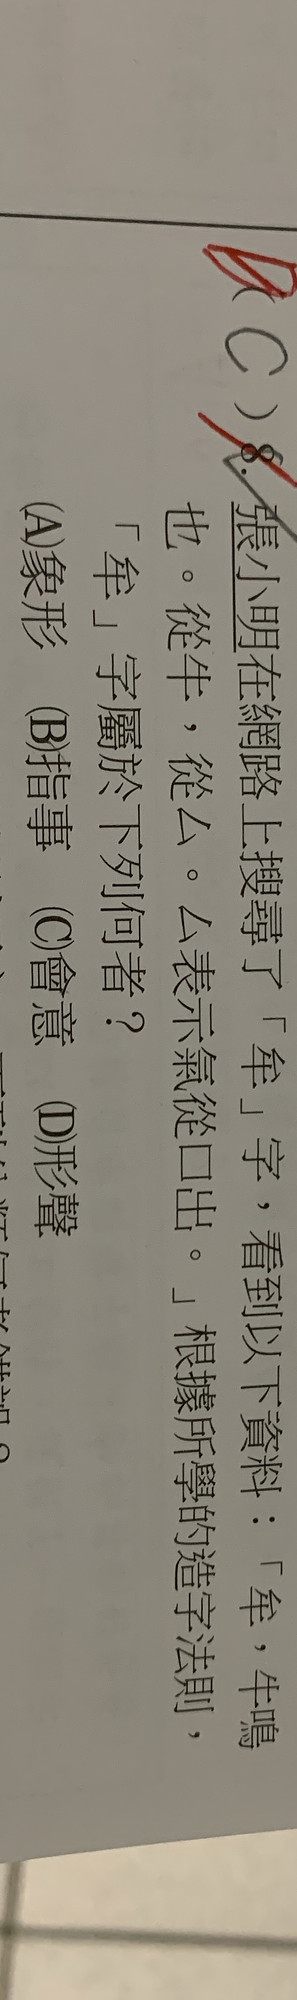 B
( C ) 8. 張小明在網路上搜尋了「牟」字，看到以下資料：「牟，牛鳴
也。從牛，從厶。厶表示氣從口出。」根據所學的造字法則，
「牟」字屬於下列何者？
(A)象形 (B)指事 (C)會意 (D)形聲